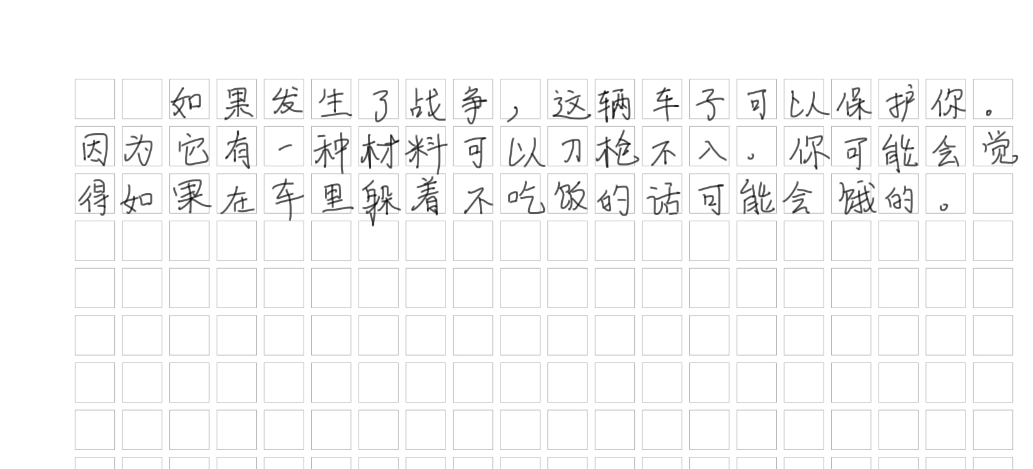 如果发生了战争，这辆车子可以保护你。
因为它有一种材料可以刀枪不入。你可能会觉
得如果在车里躲着不吃饭的话可能会饿的。